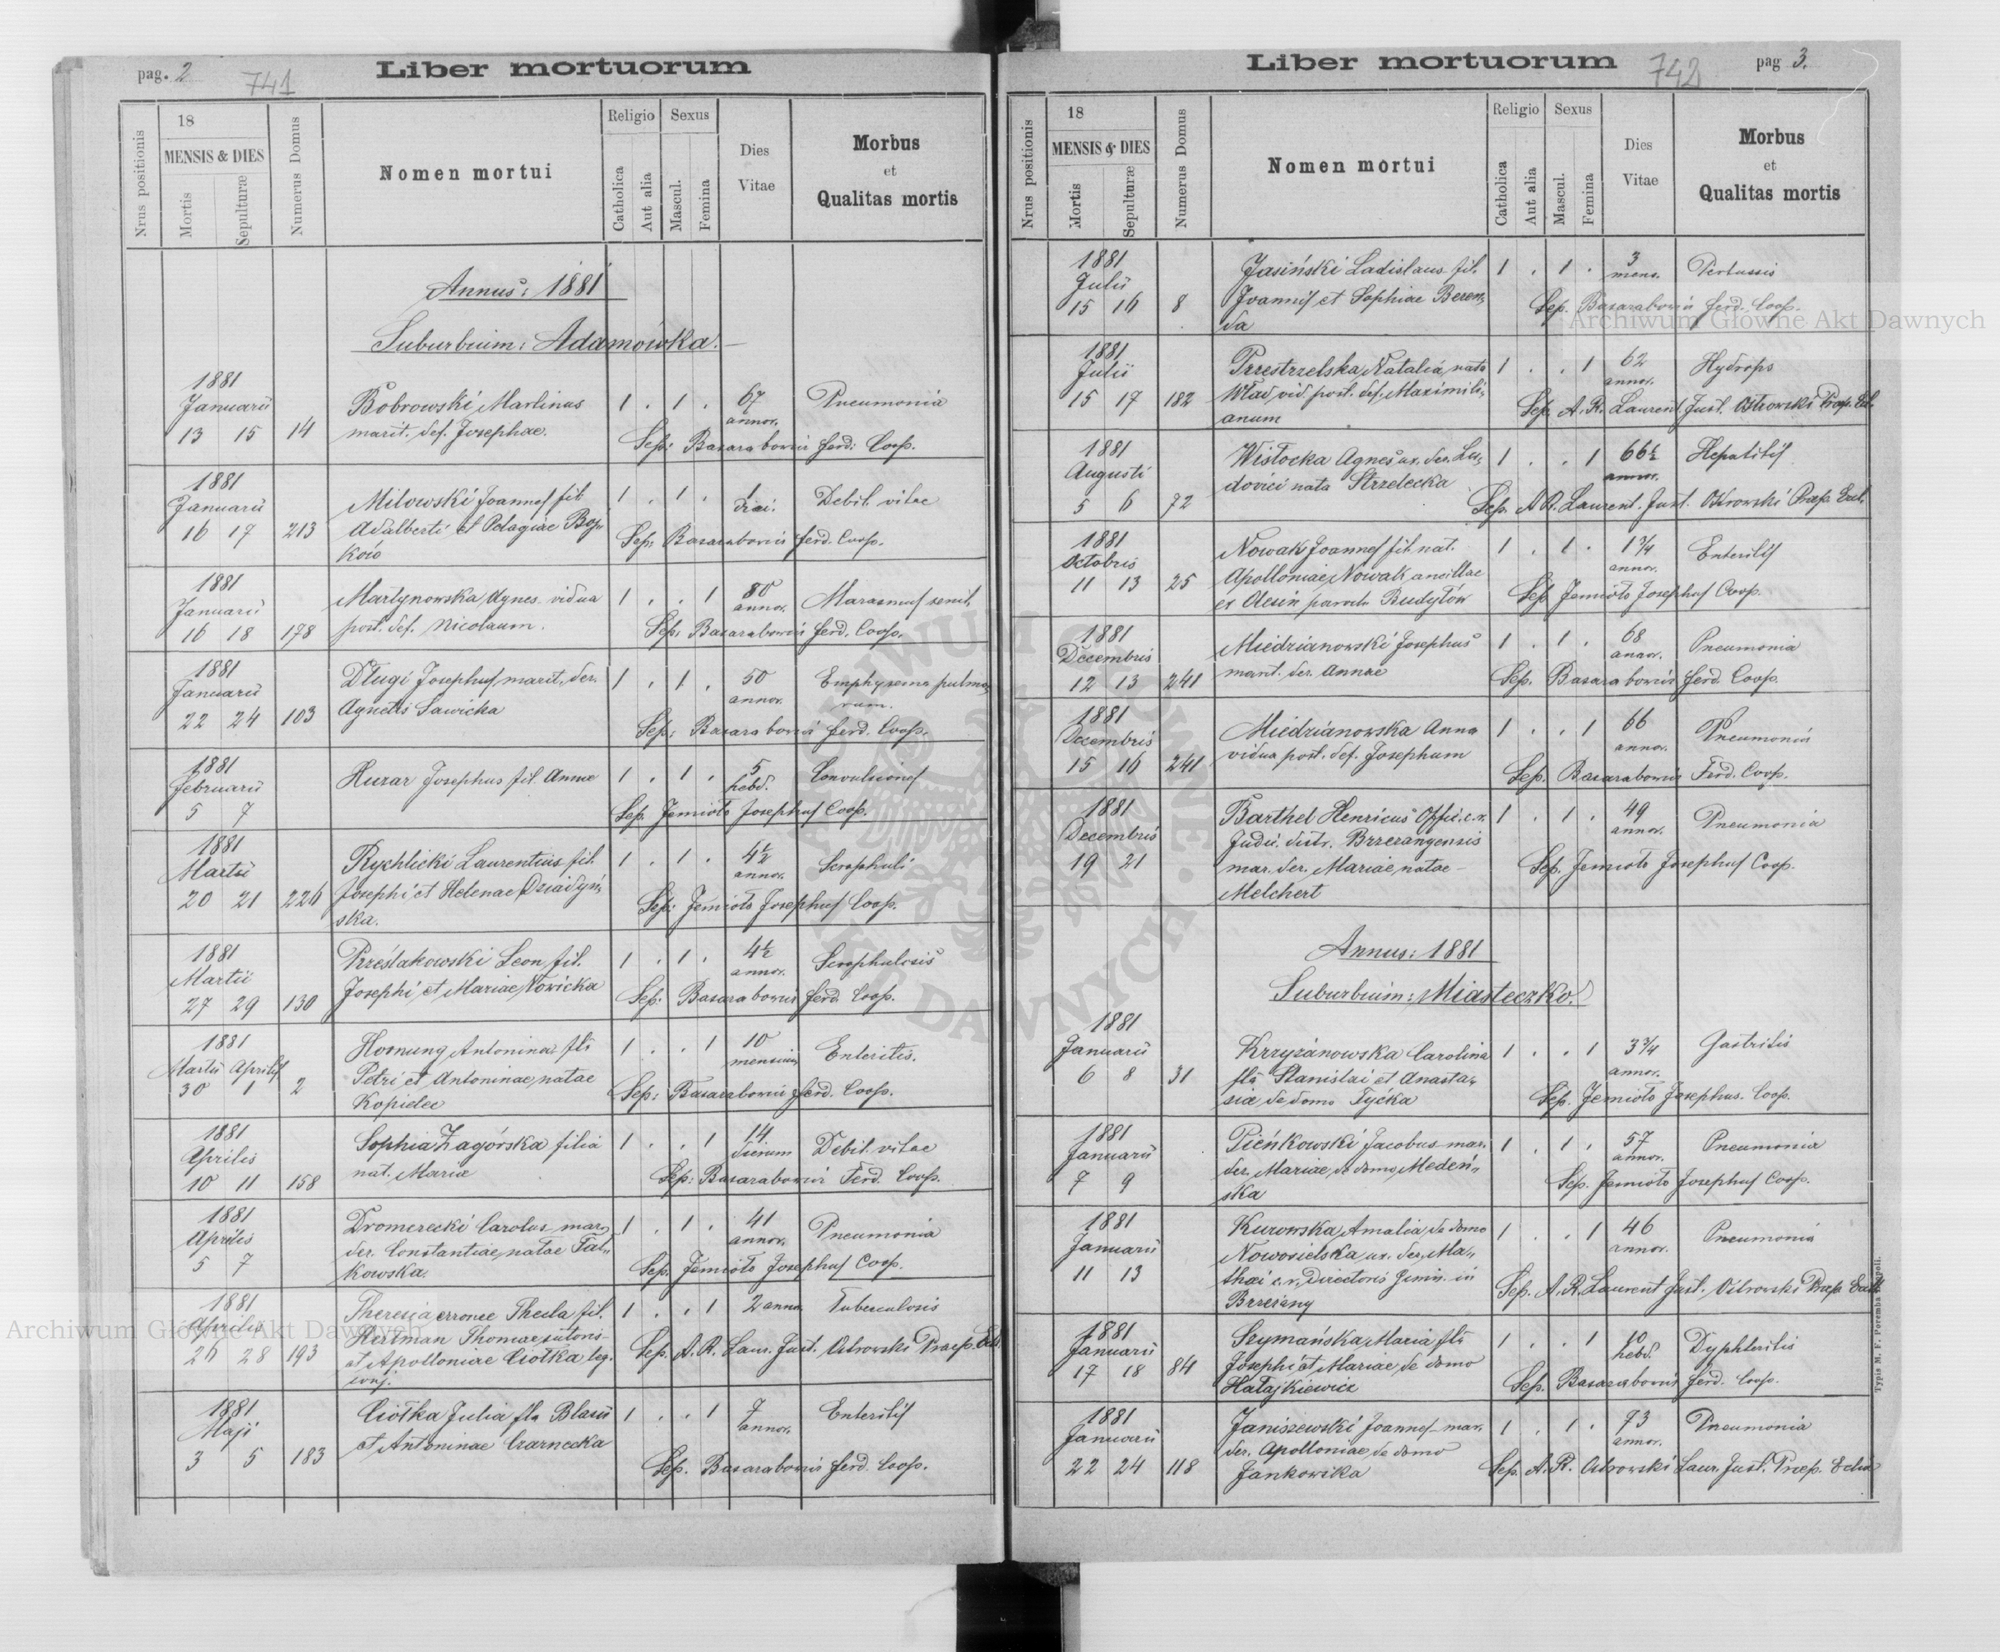 pag. 2
741
Liber mortuorum
Nrus positionis
18
MENSIS & DIES
Mortis
Sepulturæ
Numerus Domus
Nomen mortui
Religio
Catholica
Aut alia
Sexus
Mascul.
Femina
Dies
Vitae
Morbus
et
Qualitas mortis
Annus: 1881
Suburbium: Adamówka.
1881
Januarii
13 15 14
Bobrowski Martinus
marit. def. Josephae.
1 . 1 . 67
annor.
Pneumonia
Sep: Basarabowicz Ferd: Coop.
1881
Januarii
16 17 213
Milowski Joannes fil.
Adalberti et Pelagiae
1 . 1 . 1
diei.
Debit. vitae
Sep: Basarabowicz Ferd. Coop.
1881
Januarii
16 18 178
Martynowska Agnes vidua
post. def. Nicolaum.
1 . . 1 80
annor.
Marasmus senil.
Sep: Basarabowicz Ferd. Coop.
1881
Januarii
22 24 103
Długi Josephus marit. der.
Agnetis Sawicka
1 . 1 . 50
annor.
Emphysema pulmo,
num.
Sep: Basarabowicz Ferd. Coop.
1881
Februarii
5 7
Huzar Josephus fil. Annae
1 . 1 . 5
hebd.
Convulsiones
Sep. Jemioło Josephus Coop.
1881
Martii
20 21 226
Rychlicki Laurentius fil.
Josephi et Helenae Dziadyń,
ska.
1 . 1 . 4½
annor.
Scrophuli
Sep: Jemioło Josephus Coop.
1881
Martii
27 29 130
Prześlakowski Leon fil.
Josephi et Mariae Nowicka
1 . 1 . 4½
annor.
Scrophulosis
Sep: Basarabowicz Ferd. Coop.
1881
Martii Aprilis
30 1 2
Hornung Antonina fla
Petri et Antoninae natae
Kopielec
1 . . 1 10
mensium
Enteritis.
Sep: Basarabowicz Ferd. Coop.
1881
Aprilis
10 11 158
Sophia Zagórska filia
nat. Mariae
1 . . 1 14
dierum
Debit. vitae
Sep: Basarabowicz Ferd. Coop.
1881
Aprilis
5 7
Dromerecki Carolus mar,
der. Constantiae natae Fal,
kowska.
1 . 1 . 41
annor.
Pneumonia
Sep. Jemioło Josephus Coop.
1881
Aprilis
26 28 193
Theresia erronee Thecla fil.
Hertman Thomae sutoris
et Apolloniae Ciotka leg.
conj.
1 . . 1 2 anno.
Tuberculosis
Sep. A. R. Laur. Just. Ostrowski Praep. Ecl.
1881
Maji
3 5 183
Ciotka Julia fla Blasii
et Antoninae Czarnecka
1 . . 1 7
annor.
Enteritis
Sep. Basarabowicz Ferd. Coop.
Liber mortuorum
742
pag 3.
Nrus positionis
18
MENSIS & DIES
Mortis
Sepulturæ
Numerus Domus
Nomen mortui
Religio
Catholica
Aut alia
Sexus
Mascul.
Femina
Dies
Vitae
Morbus
et
Qualitas mortis
1881
Julii
15 16 8
Jasiński Ladislaus fil.
Joannis et Sophiae Beren,
da
1 . 1 . 3
mens.
Pertussis
Sep. Basarabowicz Ferd. Coop.
1881
Julii
15 17 182
Przestrzelska Natalia nata
Wład. vid. post. def. Maximili,
anum
1 . . 1 62
annor.
Hydrops
Sep. A. R. Laurent Just. Ostrowski Praep. Ecl.
1881
Augusti
5 6 72
Wisłocka Agnes ux. der. Lu,
dovici nata Strzelecka
1 . . 1 66½
annor.
Hepatitis
Sep. A. R. Laurent. Just. Ostrowski Praep. Eccl.
1881
Octobris
11 13 25
Nowak Joannes fil. nat.
Apolloniae Nowak, ancillae
ex Olesin paroch. Budyłów
1 . 1 . 1¾
annor.
Enteritis
Sep. Jemioło Josephus Coop.
1881
Decembris
12 13 241
Miedzianowski Josephus
marit. der. Annae
1 . 1 . 68
annor.
Pneumonia
Sep. Basarabowicz Ferd. Coop.
1881
Decembris
15 16 241
Miedzianowska Anna
vidua post. def. Josephum
1 . . 1 66
annor.
Pneumonia
Sep. Basarabowicz Ferd. Coop.
1881
Decembris
19 21
Barthel Henricus Offic. c. r.
Judic. distr. Brzezangensis
mar. der. Mariae natae
Melchert
1 . 1 . 49
annor.
Pneumonia
Sep. Jemioło Josephus Coop.
Annus: 1881
Suburbium: Miasteczko.
1881
Januarii
6 8 31
Krzyżanowska Carolina
fla Stanislai et Anasta,
siae de domo Tyćka
1 . . 1 3¾
annor.
Gastritis
Sep. Jemioło Josephus. Coop.
1881
Januarii
7 9
Pieńkowski Jacobus mar.
der. Mariae de domo Medeń,
ska
1 . 1 . 57
annor.
Pneumonia
Sep. Jemioło Josephus Coop.
1881
Januarii
11 13
Kurowska Amalia de domo
Nowosielska ux. der. Ma,
thaei c. r. Directoris Gimn. in
Brzeżany
1 . . 1 46
annor.
Pneumonia
Sep. A. R. Laurent Just. Ostrowski Praep. Eccl.
1881
Januarii
17 18 84
Szymańska Maria fla
Josephi et Mariae de domo
Hałajkiewicz
1 . . 1 10
hebd.
Dyphteritis
Sep. Basarabowicz Ferd. Coop.
1881
Januarii
22 24 118
Janiszewski Joannes mar.
der. Apolloniae de domo
Jankowska
1 . 1 . 73
annor.
Pneumonia
Sep. A. R. Ostrowski Laur. Just. Praep. Eclae
Archiwum Główne Akt Dawnych
Archiwum Główne Akt Dawnych
ARCHIWUM GŁÓWNE AKT DAWNYCH